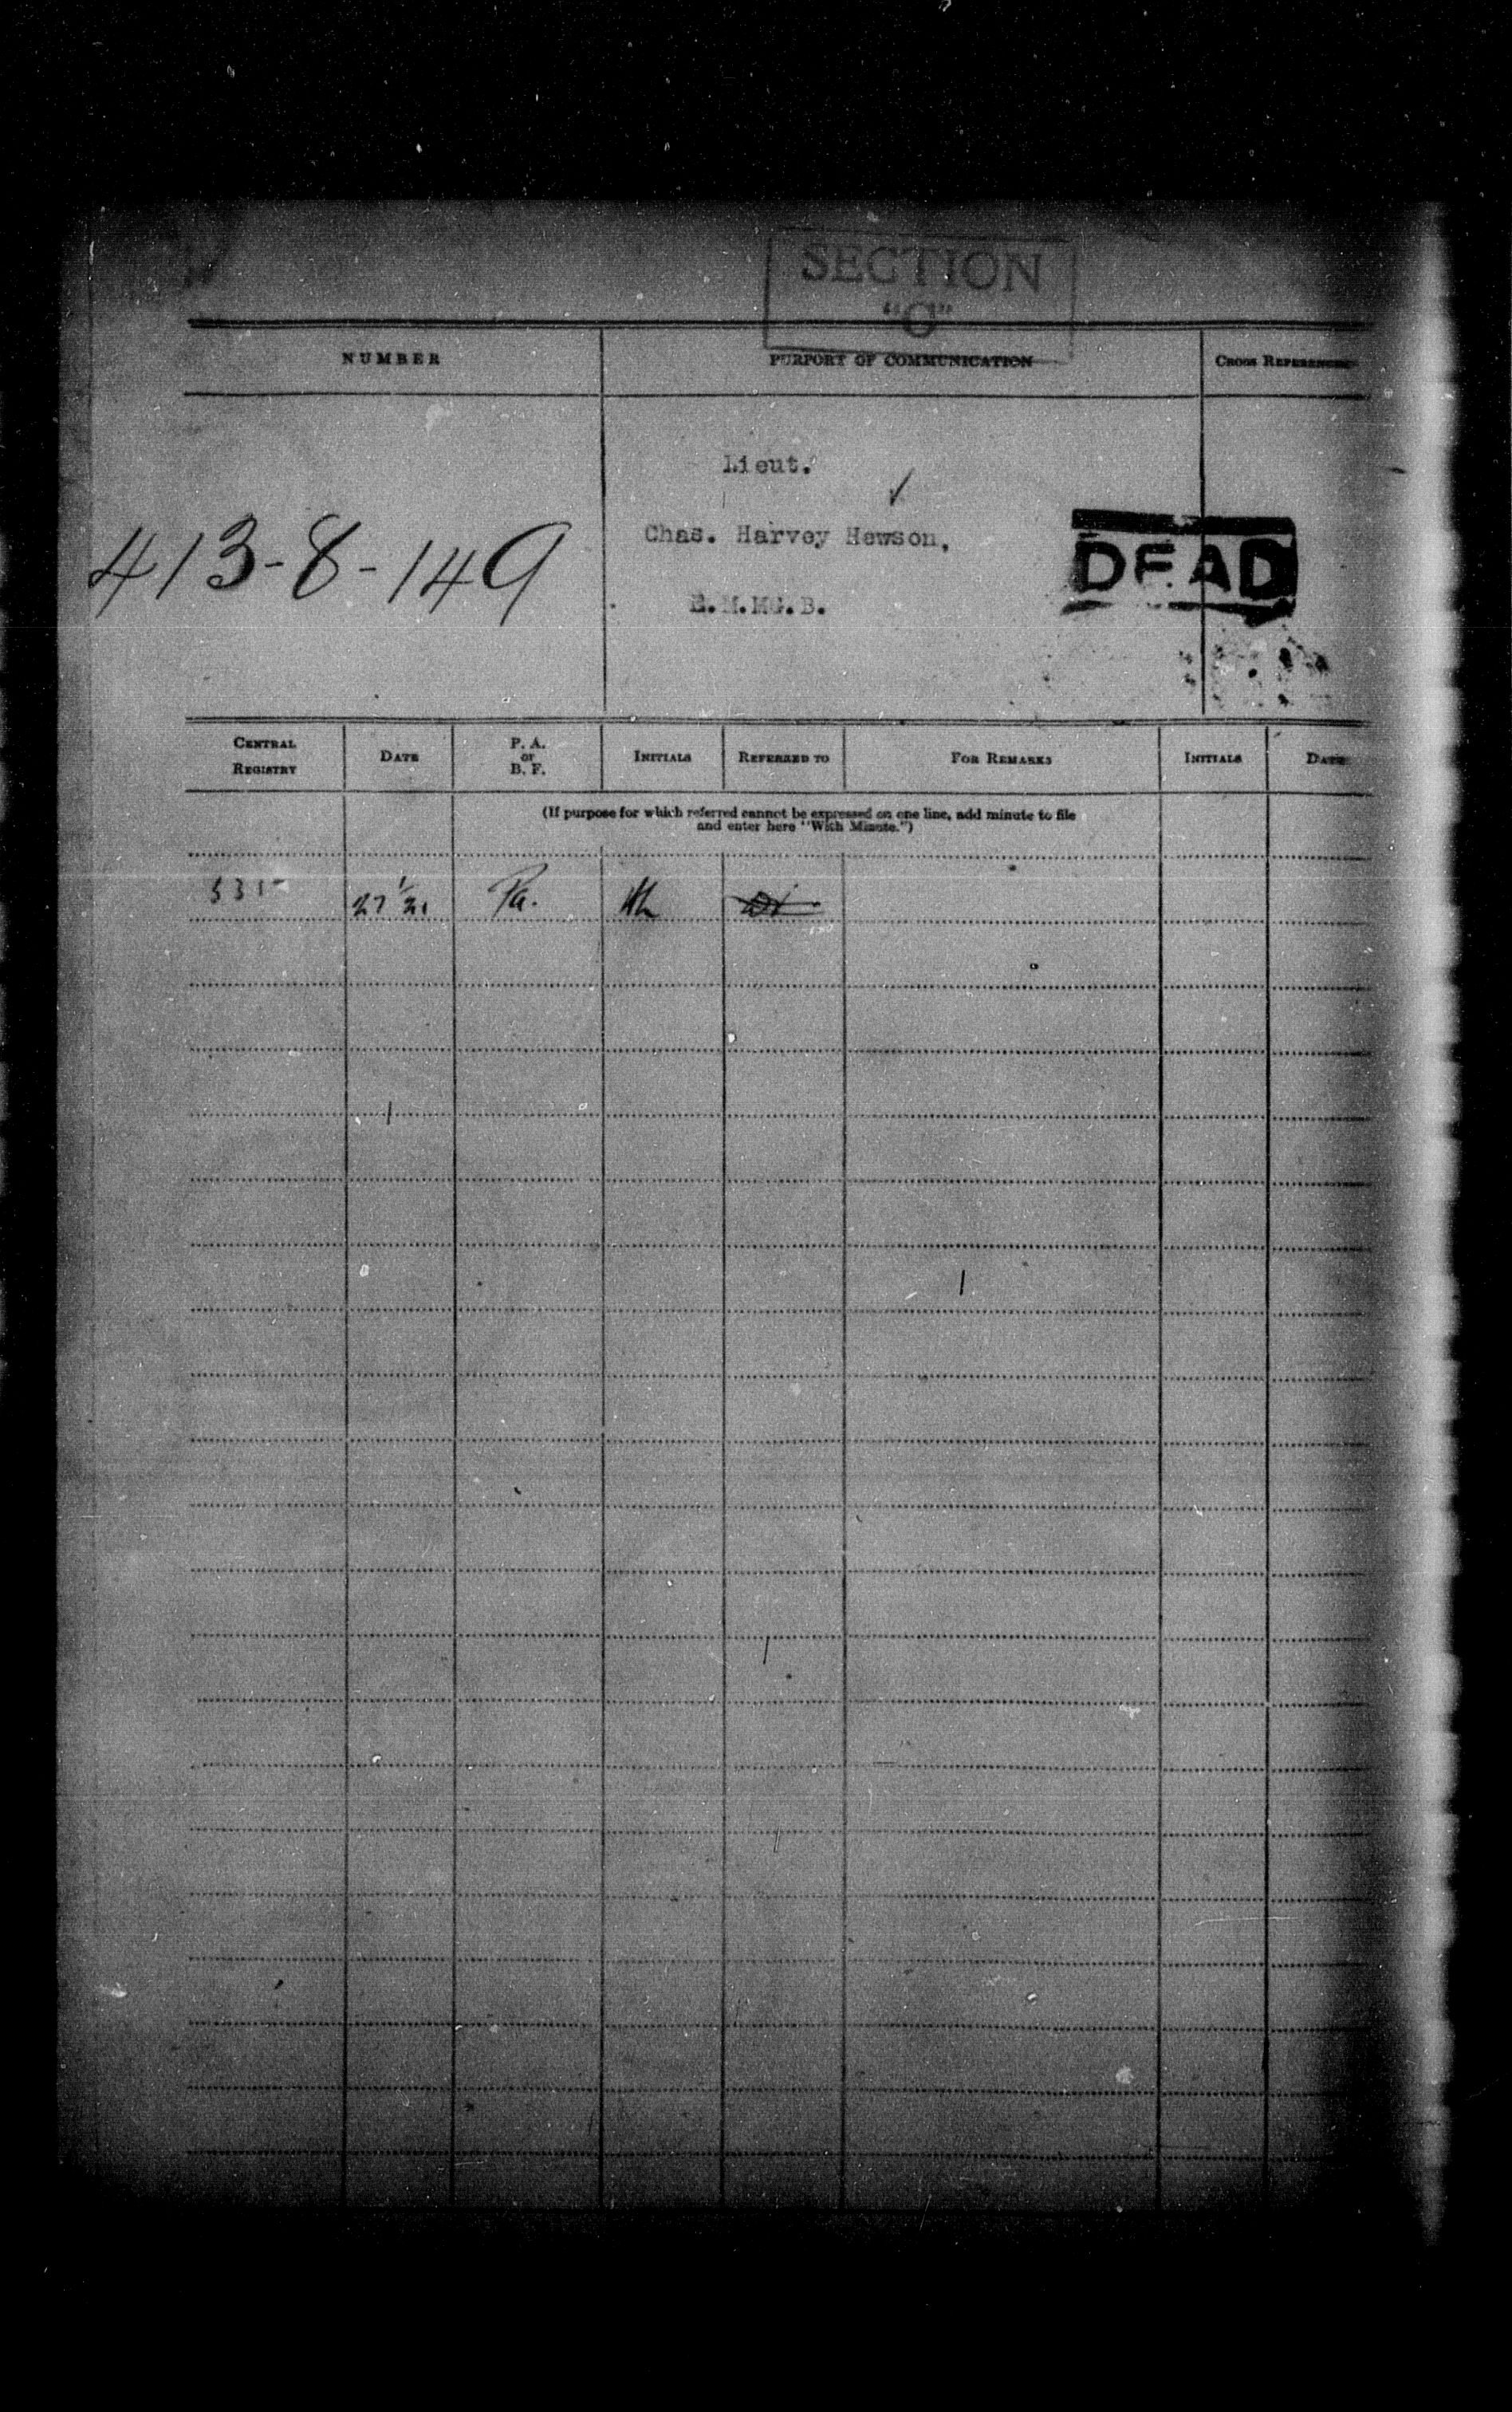 SECTION
"C"
NUMBER PURPORT OF COMMUNICATION CROSS REFERENCES
Lieut.
413-8-149
Chas. Harvey Hewson,
DEAD
E.M.MG.B.
CENTRAL REGISTRY DATE P. A. or B. F. INITIALS REFERRED TO FOR REMARKS INITIALS DATE
(If purpose for which referred cannot be expressed on one line, add minute to file
and enter here "With Minute.")
27 1/21 Pa.